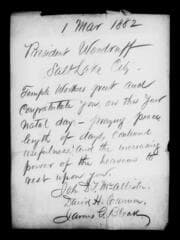 1 Mar 1882
President Woodruff
Salt Lake City.
Temple Workers greet and
Congratulate you, on this Your
natal day - praying peace
length of days, continued
usefulness and the increasing
power of the heavens to
rest upon you.
David H. Cannon